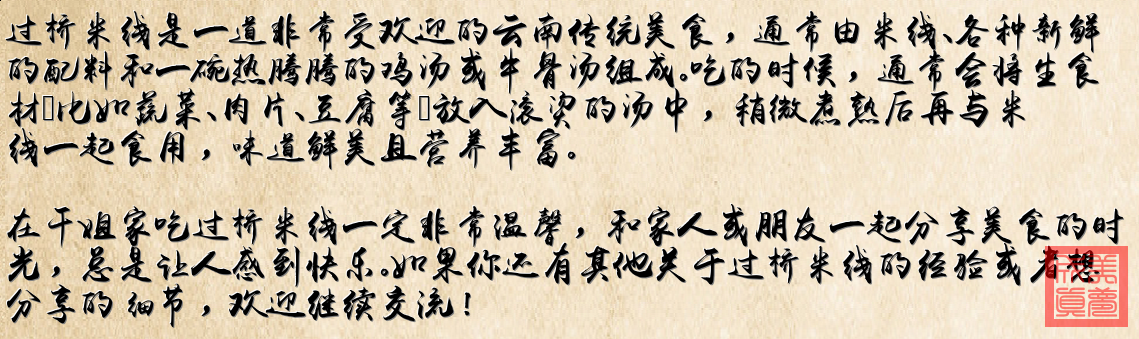 过桥米线是一道非常受欢迎的云南传统美食，通常由米线、各种新鲜
的配料和一碗热腾腾的鸡汤或牛骨汤组成。吃的时候，通常会将生食
材□比如蔬菜、肉片、豆腐等□放入滚烫的汤中，稍微煮熟后再与米
线一起食用，味道鲜美且营养丰富。
在干姐家吃过桥米线一定非常温馨，和家人或朋友一起分享美食的时
光，总是让人感到快乐。如果你还有其他关于过桥米线的经验或者想
分享的细节，欢迎继续交流！